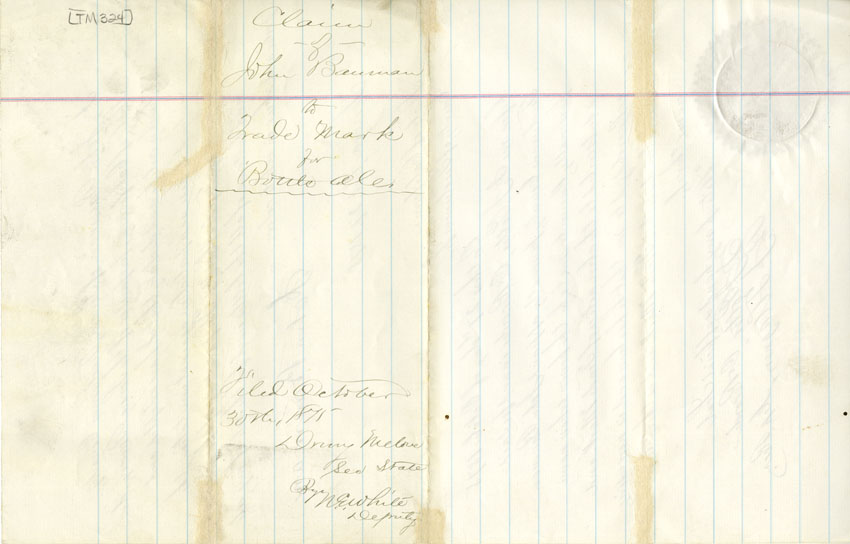 [TM 324]
Claim
of
John Bauman
to
Trade Mark
for
Filed October
30th, 1875
Drury Melone
Sec State
By
Deputy